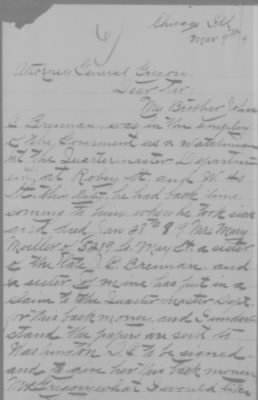 Chicago Ill
Mar 9th
Attorney General Gregory
Dear Sir
My Brother John
C Brennan, was in the employ
of the Government as a Watchman
at the Quartermaster Department
at Robey St. and
St. this City, he had back time
coming to him, when he took sick
and died Jan 23rd Mrs Mary
Moeller of 5219 So. May St. a sister
of the late J C Brennan, and
a sister of mine has put in a
claim to the Quartermaster Dept.
for this back money, and I under
stand the papers are sent to
Washington D.C to be signed
and to give her this back money
Mr Gregory what I would like